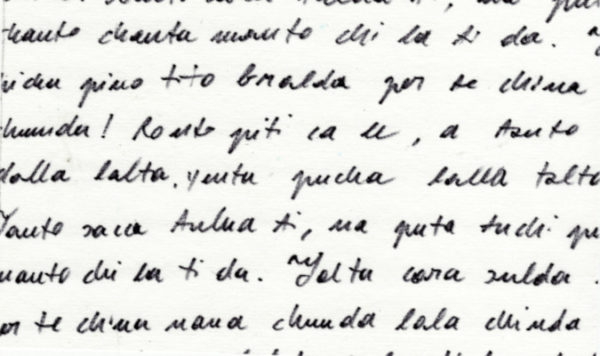 chanto chanta manto chi la ti da.
pino tito bralda por te china
chunda! Ronto piti ca le, a tanto
dolla lalta, yenta pucha lalla talto
Yanto sacca tulna ti, na puta tuchi
manto chi la ti da. Yolta cora sulda.
or te china nana chunda lala chinda